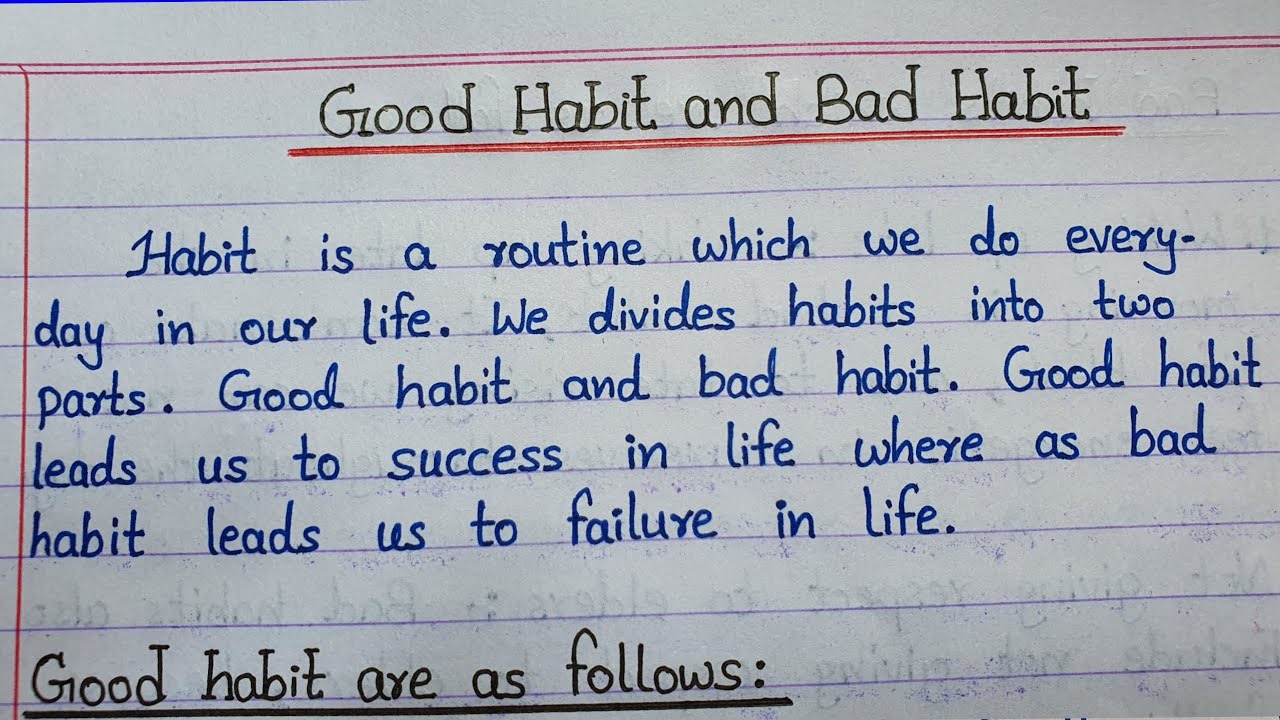 Good Habit and Bad Habit
Habit is a routine which we do every-
day in our life. We divides habits into two
parts. Good habit and bad habit. Good habit
leads us to success in life where as bad
habit leads us to failure in life.
Good habit are as follows: